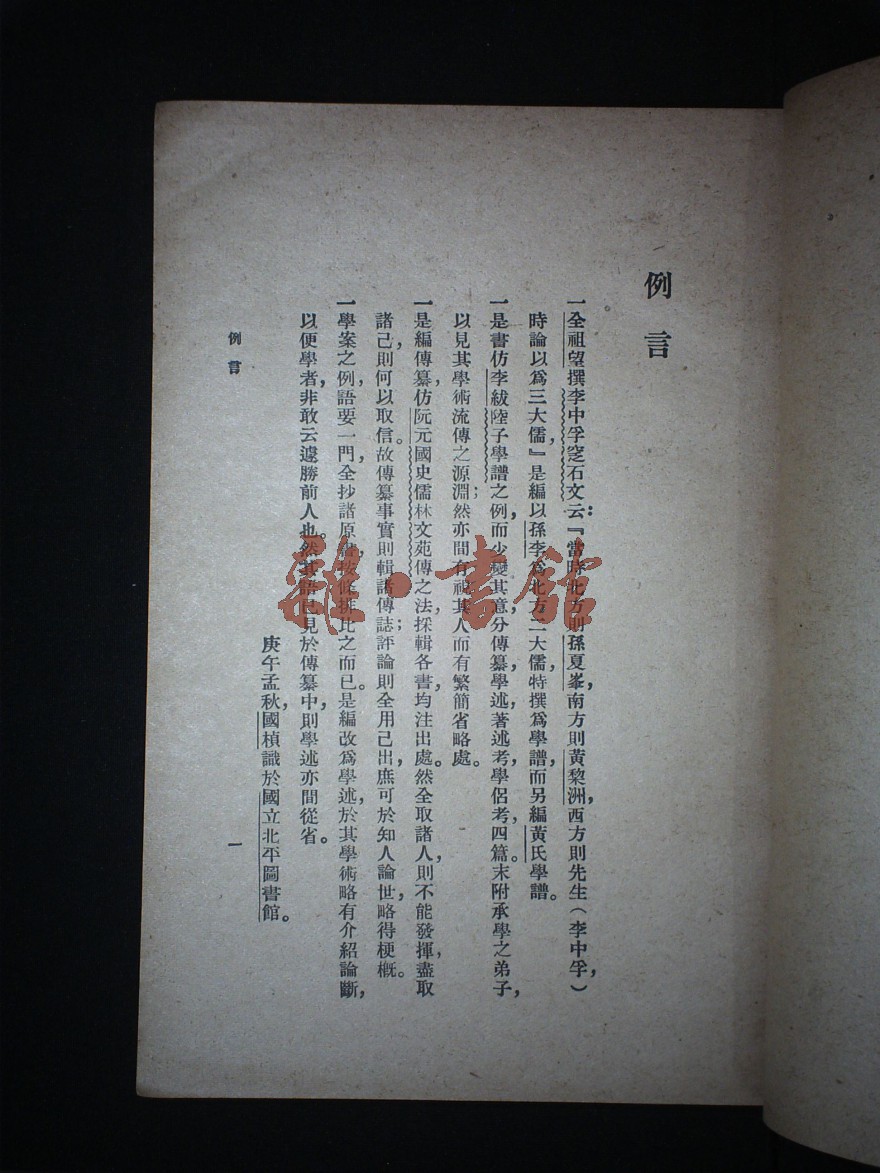 例言
一全祖望撰李中孚窆石文云：『當時北方則孫夏峯，南方則黃黎洲，西方則先生（李中孚，）
時論以爲三大儒』是編以孫李爲北方二大儒，特撰爲學譜，而另編黃氏學譜。
一是書仿李紱陸子學譜之例，而少變其意，分傳纂，學述，著述考，學侶考，四篇。末附承學之弟子，
以見其學術流傳之源淵；然亦間有視其人而有繁簡省略處。
一是編傳纂仿阮元國史儒林文苑傳之法，採輯各書，均注出處。然全取諸人，則不能發揮，盡取
諸己，則何以取信。故傳纂事實則輯諸傳誌；評論則全用己出，庶可於知人論世，略得梗概。
一學案之例，語要一門，全抄諸原書，按條排比之而已。是編改爲學述，於其學術略有介紹論斷，
以便學者，非敢云遽勝前人也。然其語已見於傳纂中，則學述亦間從省。
庚午孟秋，國楨識於國立北平圖書館。
例言
一
雜·書館